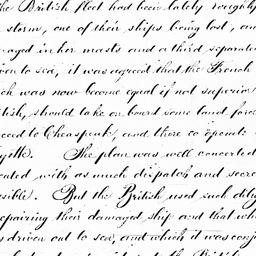 the British fleet had been lately roughly
storm, one of their ships being lost, an
maged in her masts and a third separate
ven to sea, it was agreed that the French
ch was now become equal if not superior
tish, should take on board some land force
ceed to Chesapeak, and there co operate
yette. The plan was well concerted
cuted with as much dispatch and secre
ssible. But the British used such dilig
epairing their damaged ship and that wh
s driven out to sea, and which it was conj